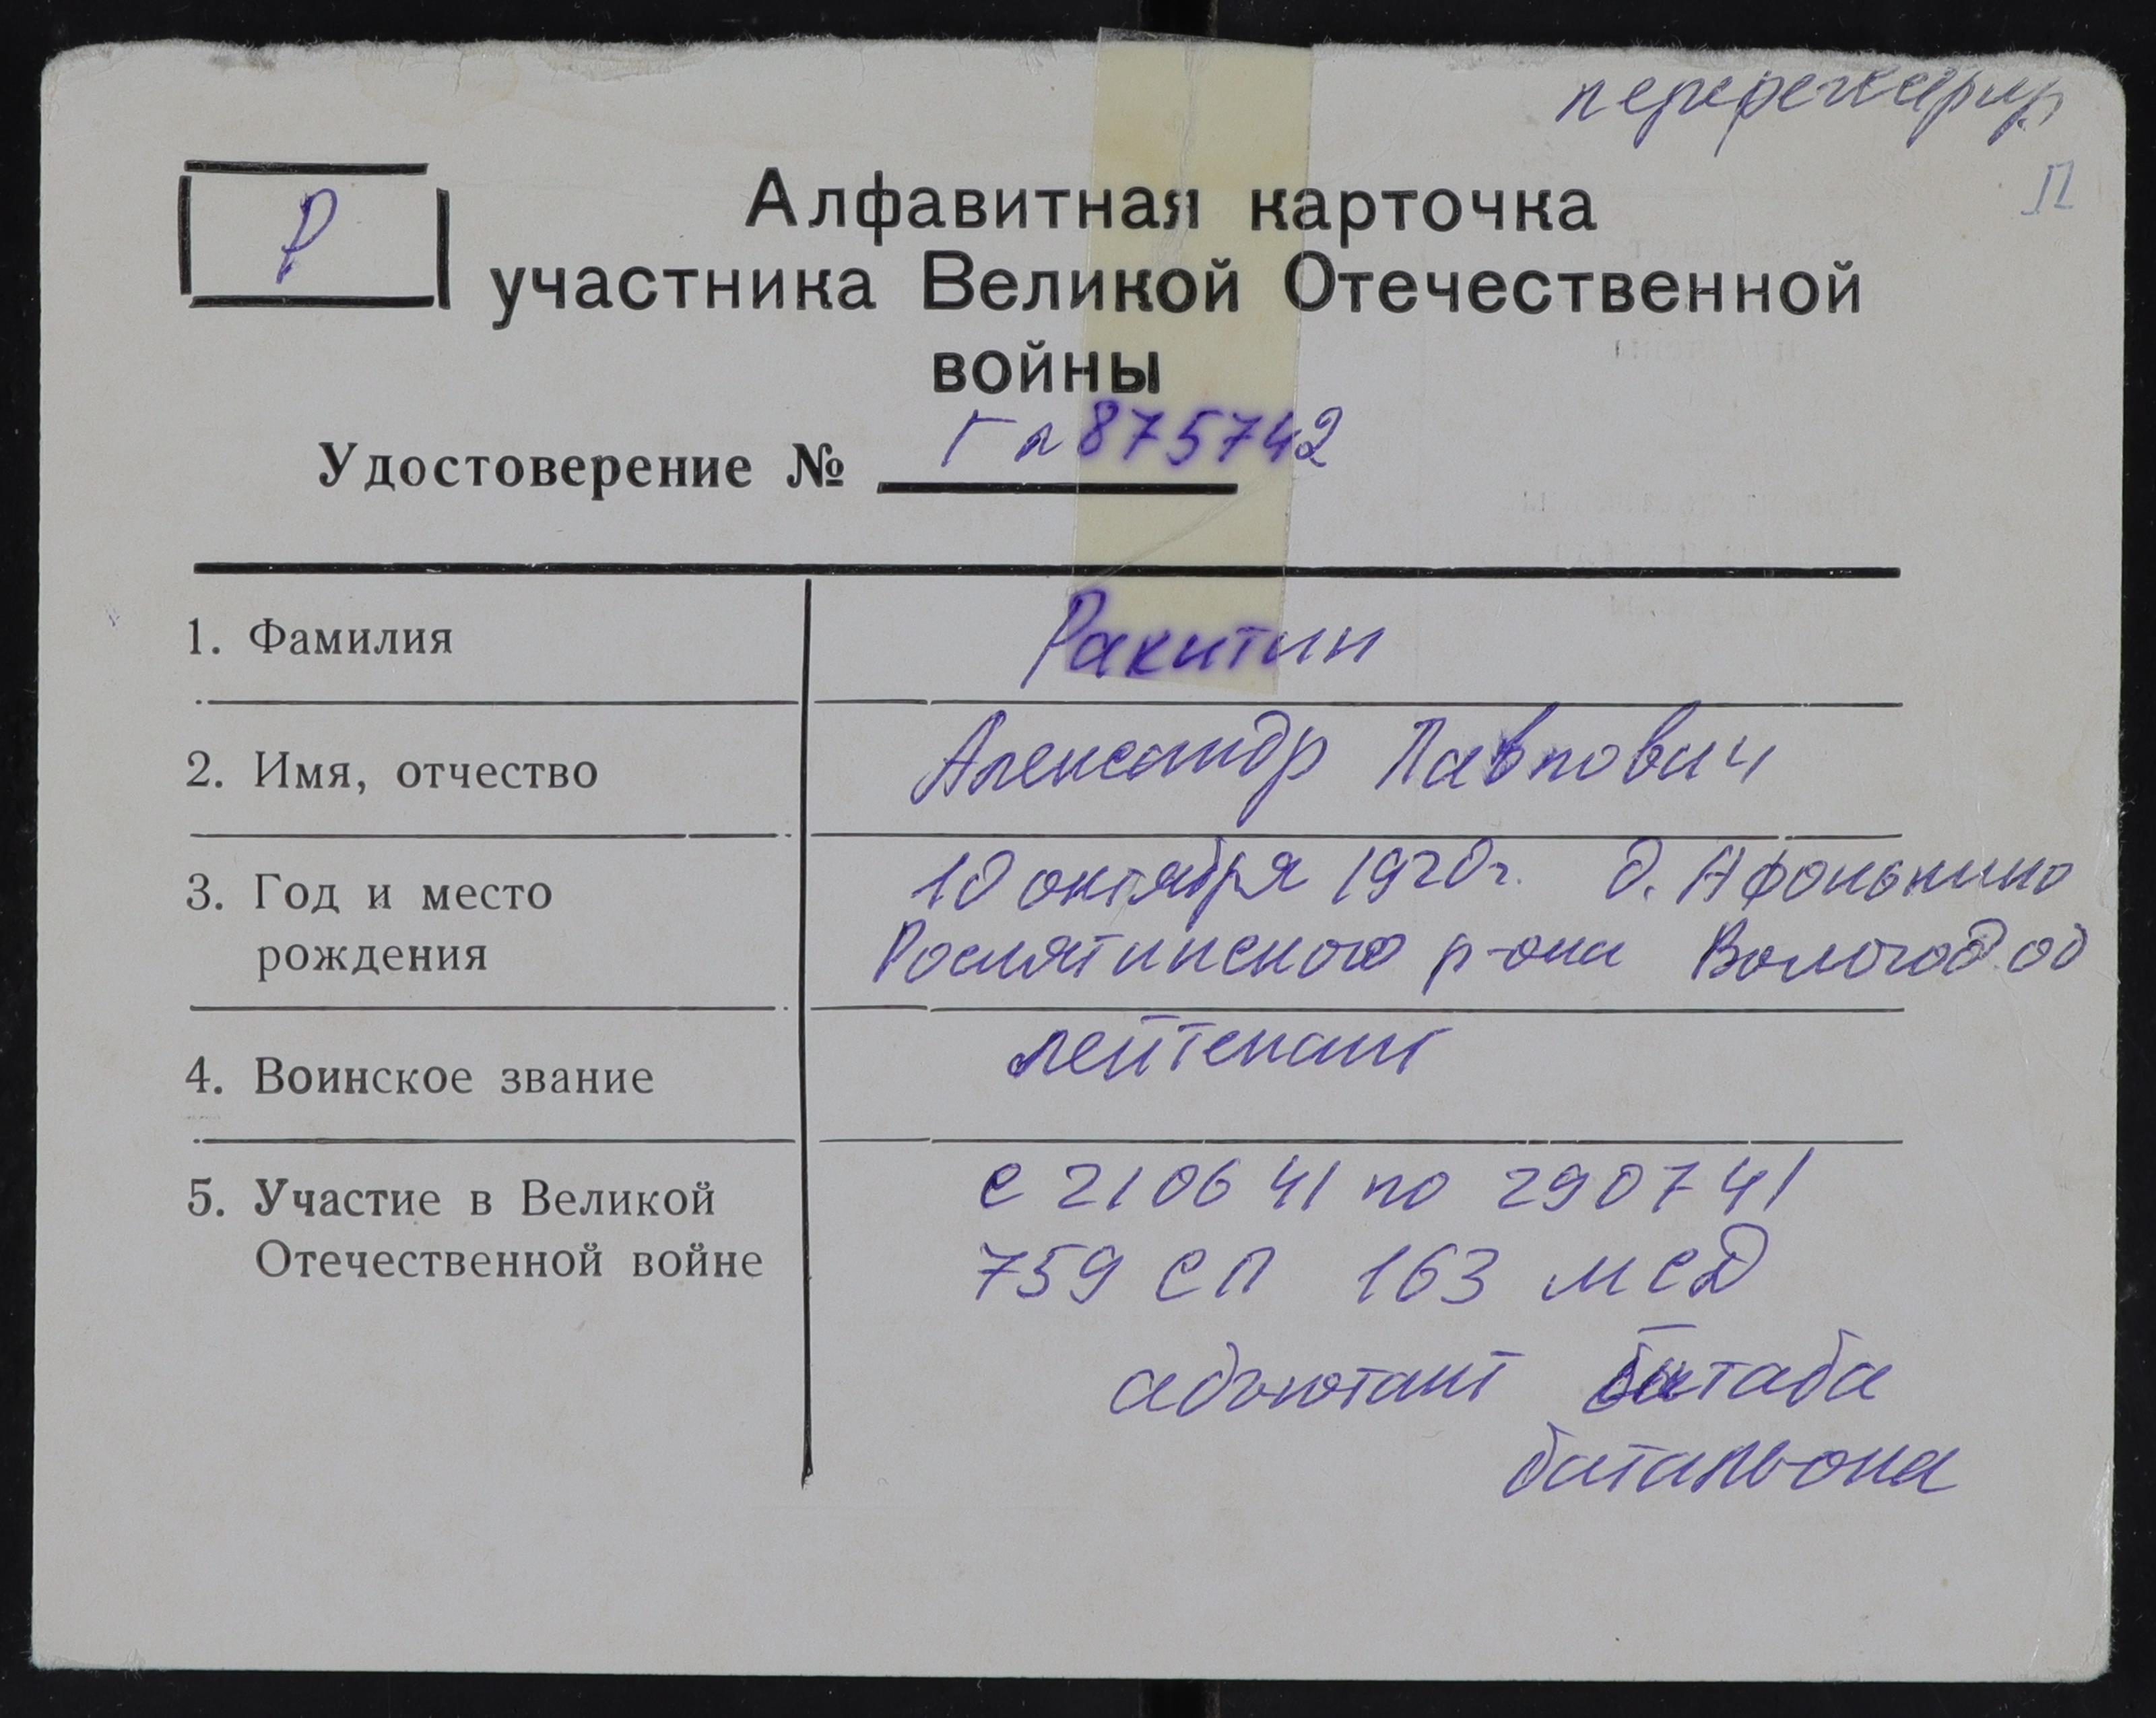 перерегистрир
II
Р
Алфавитная карточка
участника Великой Отечественной
войны
Удостоверение № Гл 875742
1. Фамилия Ракитин
2. Имя, отчество Александр Павлович
3. Год и место 10 октября 1920г. д. Афонькино
рождения Рослятинского р-она Вологод об
4. Воинское звание лейтенант
5. Участие в Великой с 21 06 41 по 29 07 41
Отечественной войне 759 СП 163 МСД
адъютант штаба
батальона